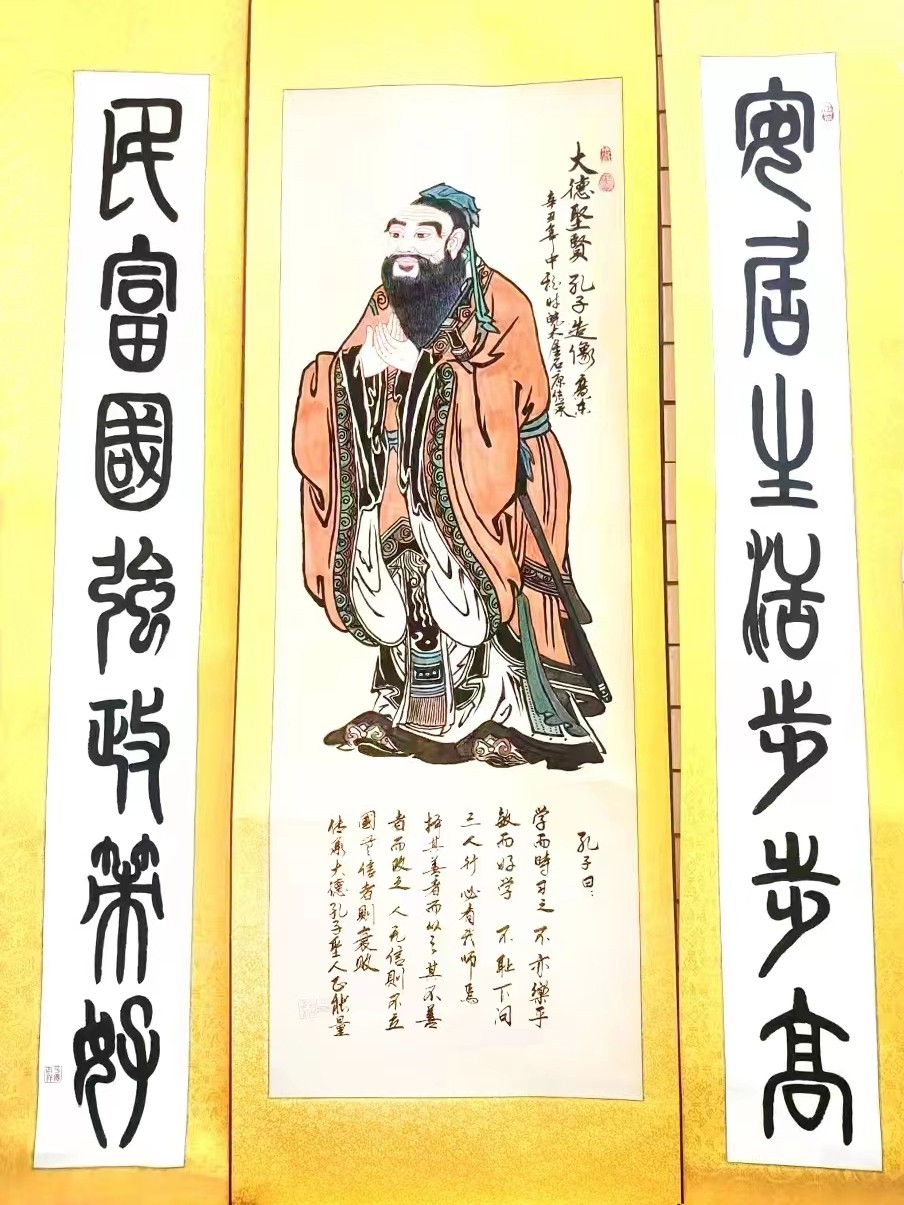 安居生活步步高
大德圣贤 孔子造像
辛丑年中秋时
孔子曰：
学而時习之 不亦樂乎
敏而好学 不耻下问
三人行必有我师焉
择其善者而从之其不善
者而改之 人无信则不立
國无信者则衰败
传承大德孔子圣人正能量
民富國強政策好